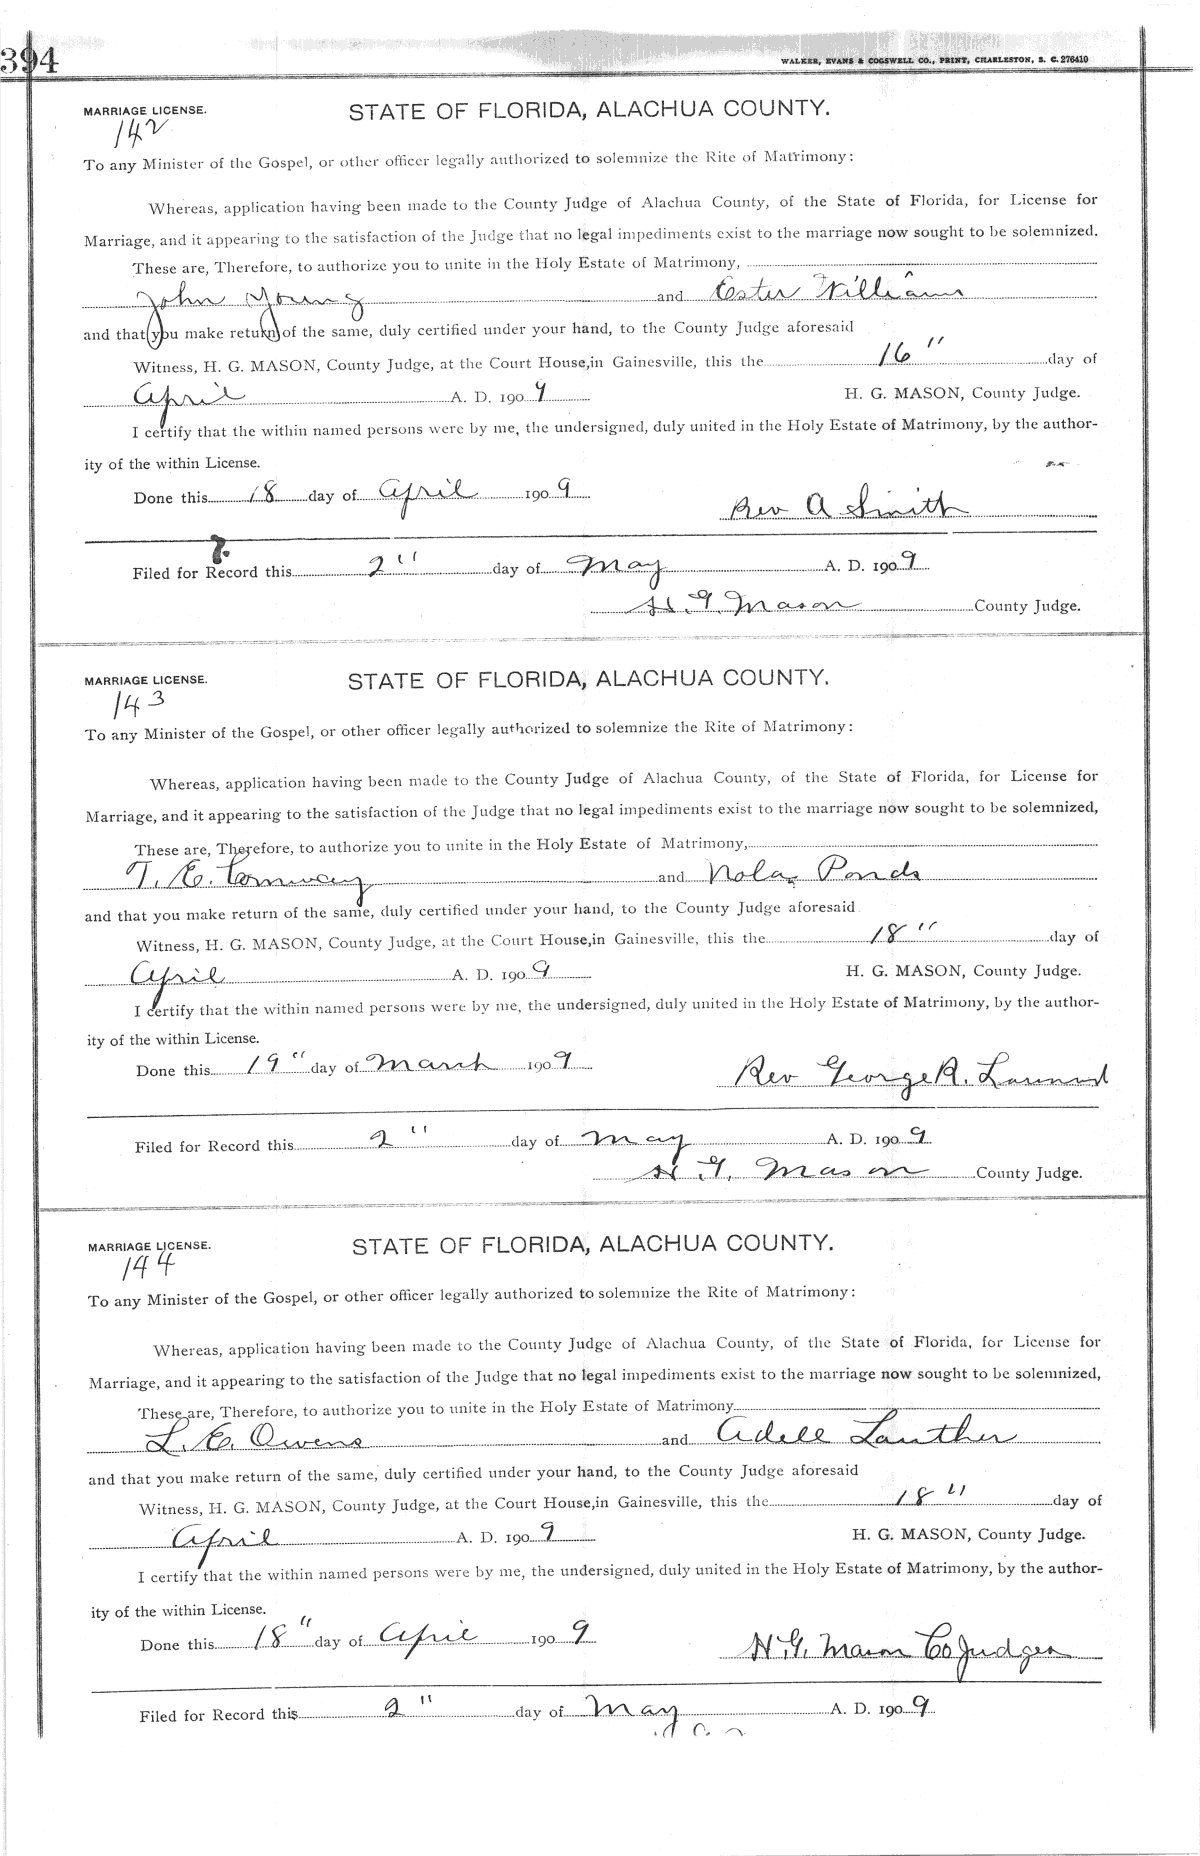 394
WALKER, EVANS & COGSWELL CO., PRINT, CHARLESTON, S. C. 276410
MARRIAGE LICENSE. STATE OF FLORIDA, ALACHUA COUNTY.
142
To any Minister of the Gospel, or other officer legally authorized to solemnize the Rite of Matrimony:
Whereas, application having been made to the County Judge of Alachua County, of the State of Florida, for License for
Marriage, and it appearing to the satisfaction of the Judge that no legal impediments exist to the marriage now sought to be solemnized,
These are, Therefore, to authorize you to unite in the Holy Estate of Matrimony,
John Young and Ester Williams
and that you make return of the same, duly certified under your hand, to the County Judge aforesaid
Witness, H. G. MASON, County Judge, at the Court House, in Gainesville, this the 16" day of
April A. D. 1909 H. G. MASON, County Judge.
I certify that the within named persons were by me, the undersigned, duly united in the Holy Estate of Matrimony, by the author-
ity of the within License.
Done this 18 day of April 1909
Rev A Smith
Filed for Record this 2" day of May A. D. 1909
H. G. Mason County Judge.
MARRIAGE LICENSE. STATE OF FLORIDA, ALACHUA COUNTY.
143
To any Minister of the Gospel, or other officer legally authorized to solemnize the Rite of Matrimony:
Whereas, application having been made to the County Judge of Alachua County, of the State of Florida, for License for
Marriage, and it appearing to the satisfaction of the Judge that no legal impediments exist to the marriage now sought to be solemnized,
These are, Therefore, to authorize you to unite in the Holy Estate of Matrimony,
T. E. Conway and Nola Ponds
and that you make return of the same, duly certified under your hand, to the County Judge aforesaid
Witness, H. G. MASON, County Judge, at the Court House, in Gainesville, this the 18" day of
April A. D. 1909 H. G. MASON, County Judge.
I certify that the within named persons were by me, the undersigned, duly united in the Holy Estate of Matrimony, by the author-
ity of the within License.
Done this 19" day of March 1909
Rev George R.
Filed for Record this 2" day of May A. D. 1909
H. G. Mason County Judge.
MARRIAGE LICENSE. STATE OF FLORIDA, ALACHUA COUNTY.
144
To any Minister of the Gospel, or other officer legally authorized to solemnize the Rite of Matrimony:
Whereas, application having been made to the County Judge of Alachua County, of the State of Florida, for License for
Marriage, and it appearing to the satisfaction of the Judge that no legal impediments exist to the marriage now sought to be solemnized,
These are, Therefore, to authorize you to unite in the Holy Estate of Matrimony
L. E. Owens and Adell Lauther
and that you make return of the same, duly certified under your hand, to the County Judge aforesaid
Witness, H. G. MASON, County Judge, at the Court House, in Gainesville, this the 18" day of
April A. D. 1909 H. G. MASON, County Judge.
I certify that the within named persons were by me, the undersigned, duly united in the Holy Estate of Matrimony, by the author-
ity of the within License.
Done this 18" day of April 1909
H. G. Mason Co Judge
Filed for Record this 2" day of May A. D. 1909